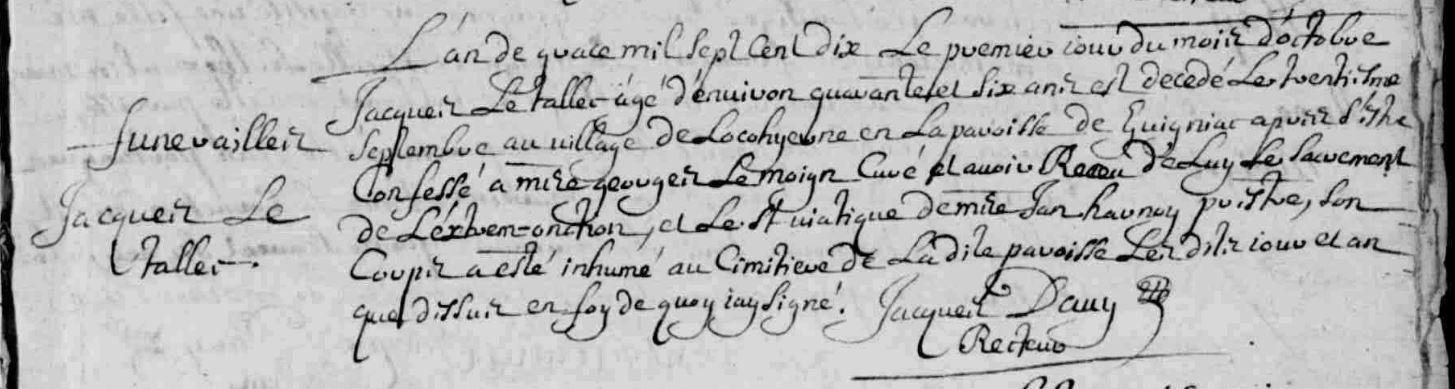 L'an de grace mil sept cent dix Le premier iour du mois d'octobre
Jacques Le tallec agé d'enuiron quarante et six ans est decedé Le trentiesme
funerailles
septembre au uillage de Locohyerne en La paroisse de Guigniac apres s'estre
Confessé a mire georges Le moign Curé et auoir Receu de Luy Le sacrement
Jacques Le
de L'extrem-onction, et Le st uiatique de mire Jan haunoy prestre, son
tallec.
Corps a esté inhumé au Cimitiere de La dite paroisse Les dits iour et an
que dessus en foy de quoy iay signé. Jacques Dauy
Recteur